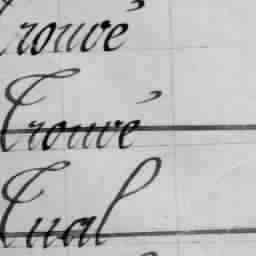 Trouvé
Trouvé
Tual